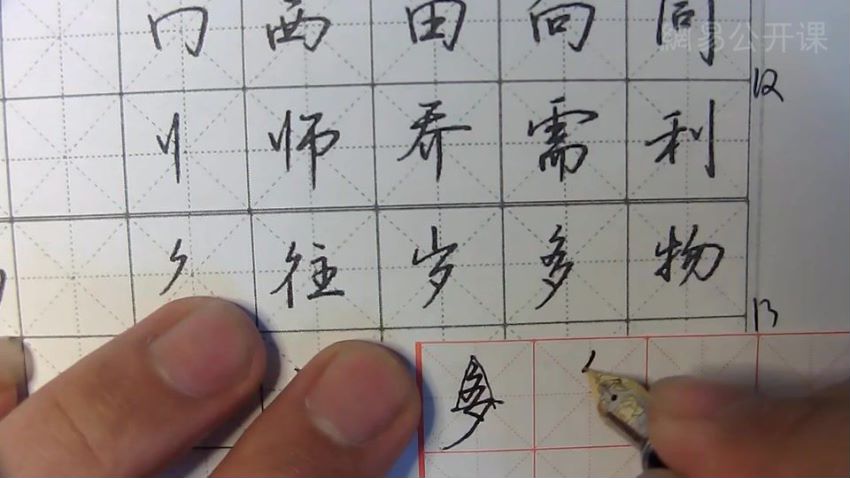 冂 西 由 向 同
網易公开课
12
刂 师 乔 需 利
往 岁 多 物
13
多